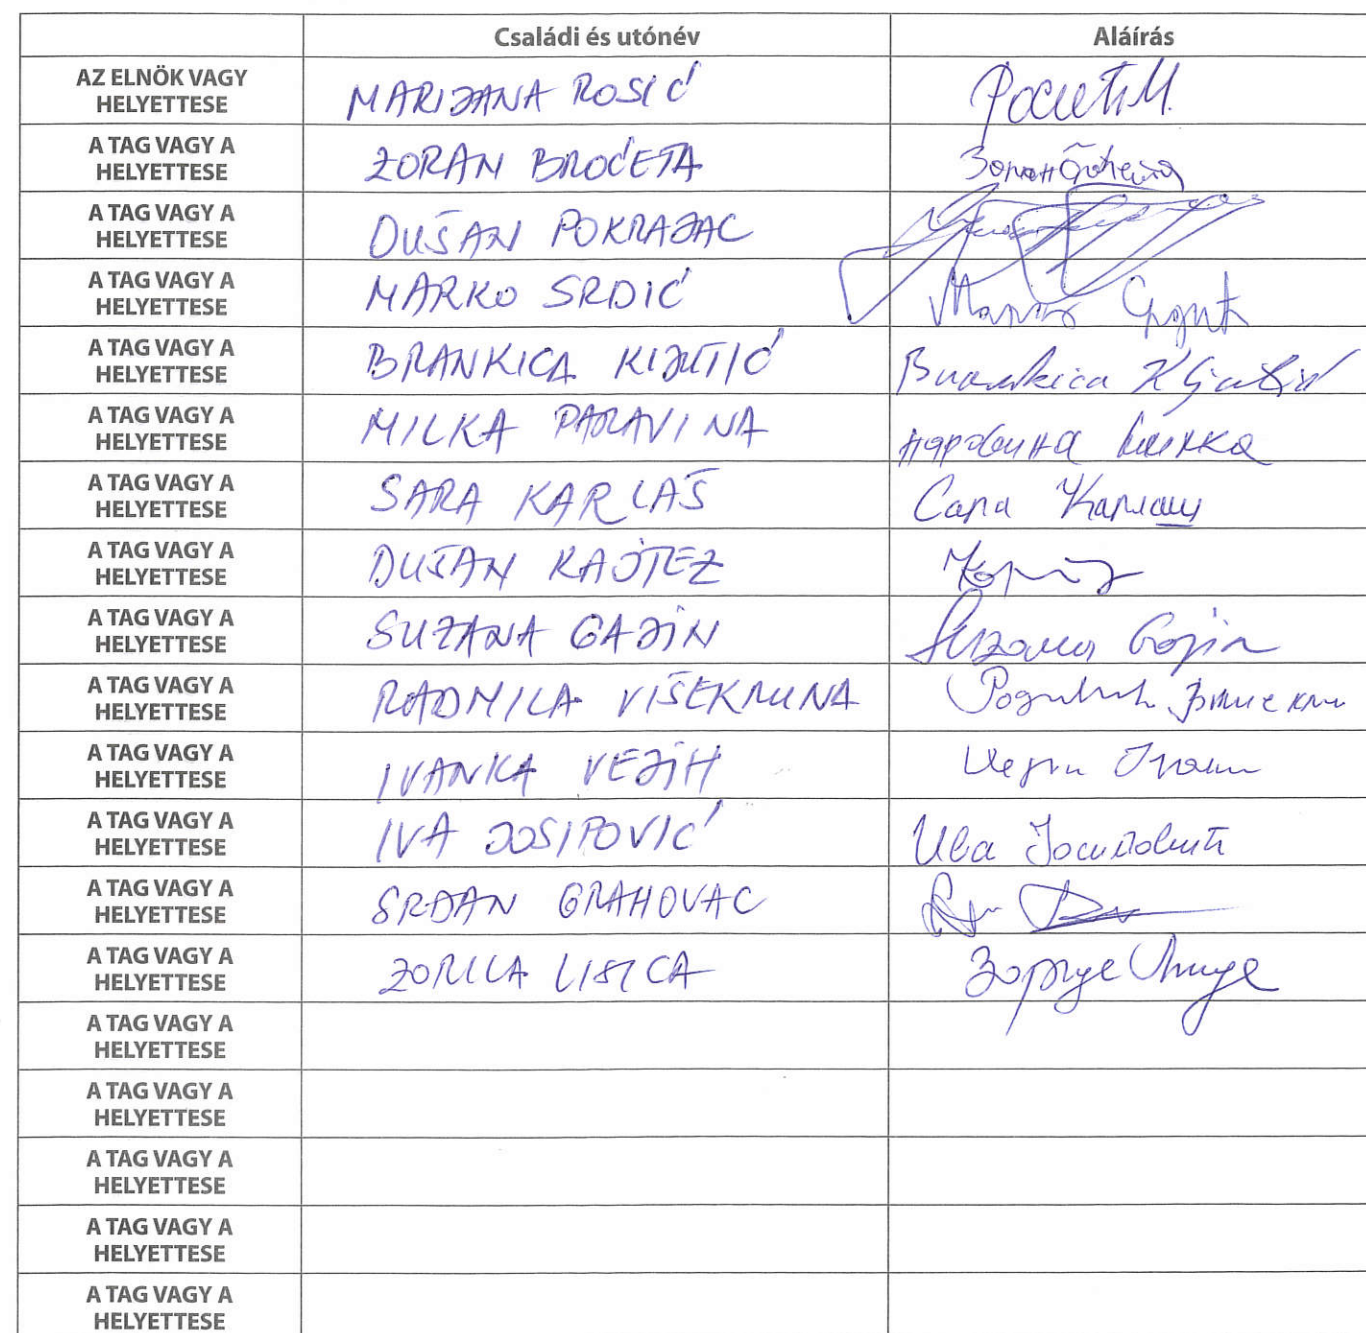 Családi és utónév Aláírás
AZ ELNÖK VAGY
HELYETTESE
MARIJANA ROSIĆ
A TAG VAGY A
HELYETTESE
ZORAN BROĆETA
A TAG VAGY A
HELYETTESE
DUŠAN POKRAJAC
A TAG VAGY A
HELYETTESE
MARKO SRDIĆ
A TAG VAGY A
HELYETTESE
BRANKICA
A TAG VAGY A
HELYETTESE
MILKA PARAVINA
A TAG VAGY A
HELYETTESE
SARA KARLAŠ Сара Карлаш
A TAG VAGY A
HELYETTESE
DUŠAN KAJTEZ
A TAG VAGY A
HELYETTESE
SUZANA GAJIN Suzana Gajin
A TAG VAGY A
HELYETTESE
RADMILA VIŠEKRUNA
A TAG VAGY A
HELYETTESE
IVANKA VEJIH
A TAG VAGY A
HELYETTESE
IVA JOSIPOVIĆ Ива Јосиповић
A TAG VAGY A
HELYETTESE
SRĐAN GRAHOVAC
A TAG VAGY A
HELYETTESE
ZORICA LISICA
A TAG VAGY A
HELYETTESE
A TAG VAGY A
HELYETTESE
A TAG VAGY A
HELYETTESE
A TAG VAGY A
HELYETTESE
A TAG VAGY A
HELYETTESE